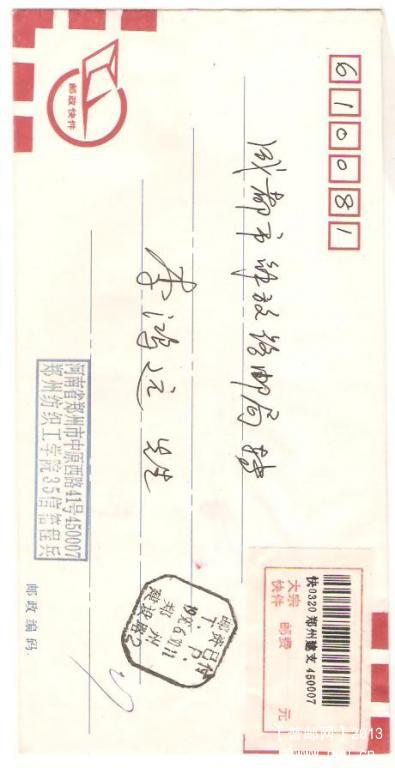 610081
成都市解放路邮局转
李鸿远 先生
邮政快件
河南省郑州市中原西路41号450007
郑州纺织工学院35信箱程兵
邮政编码
快0320 郑州建支 450007
大宗 邮费 元
快件
邮资已付
郑州
建设路2
2013